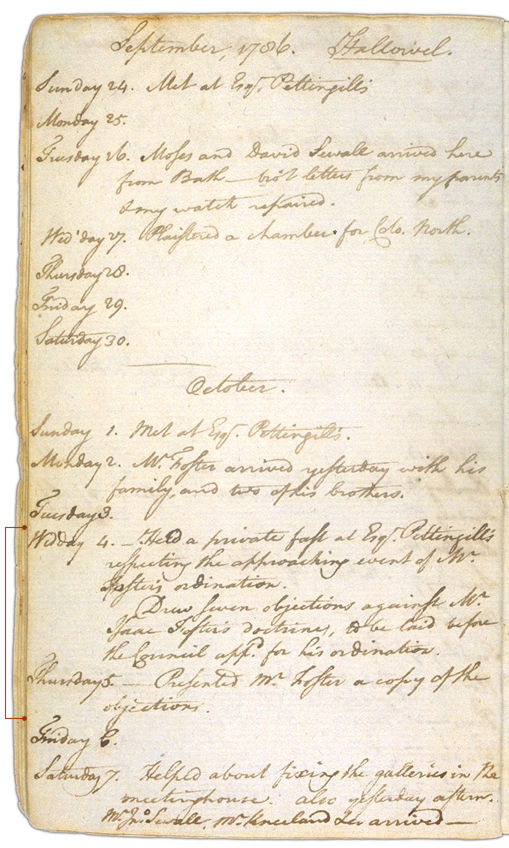 September, 1786. Hallowel.
Sunday 24. Met at Esqr. Pettingill's
Monday 25.
Tuesday 26. Moses and David Sewall arrived here
from Bath — bro't letters from my parents
& my watch repaired.
Wed'day 27. Plaistered a chamber for Colo. North.
Thursday 28.
Friday 29.
Saturday 30.
October.
Sunday 1. Met at Esqr. Pettingill's.
Monday 2. Mr. Foster arrived yesterday with his
family, and two of his brothers.
Tuesday 3.
Wedday 4. — Held a private fast at Esqr. Pettingill's
respecting the approaching event of Mr.
Foster's ordination.
Draw seven objections against Mr.
Isaac Foster's doctrines, to be laid before
the Council appd. for his ordination.
Thursday 5. — Presented Mr Foster a copy of the
objections.
Friday 6.
Saturday 7. Helped about fixing the galleries in the
meetinghouse. also yesterday aftern.
Mr. Jno. Sewall, Mr. Kneeland &c arrived —